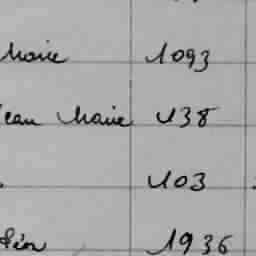 Marie 1093
Jean Marie 1138
1103
Léon 1936